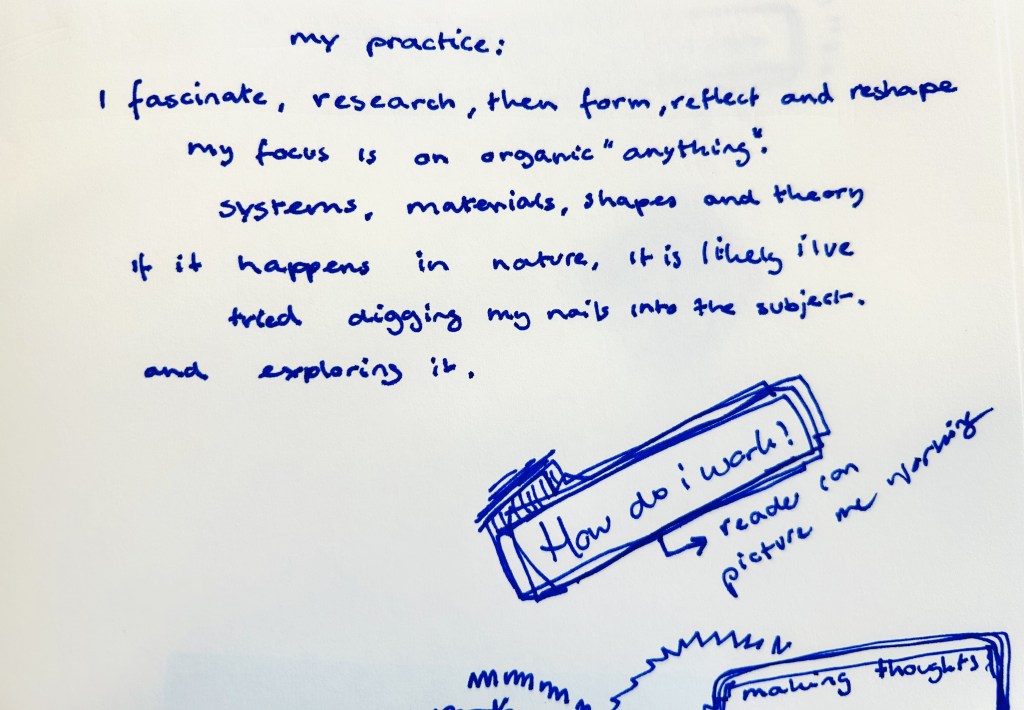 my practice:
I fascinate, research, then form, reflect and reshape
my focus is on organic "anything".
systems, materials, shapes and theory
If it happens in nature, it is likely i've
tried digging my nails into the subject.
and exploring it.
How do i work?
reader can
picture me working
making thoughts